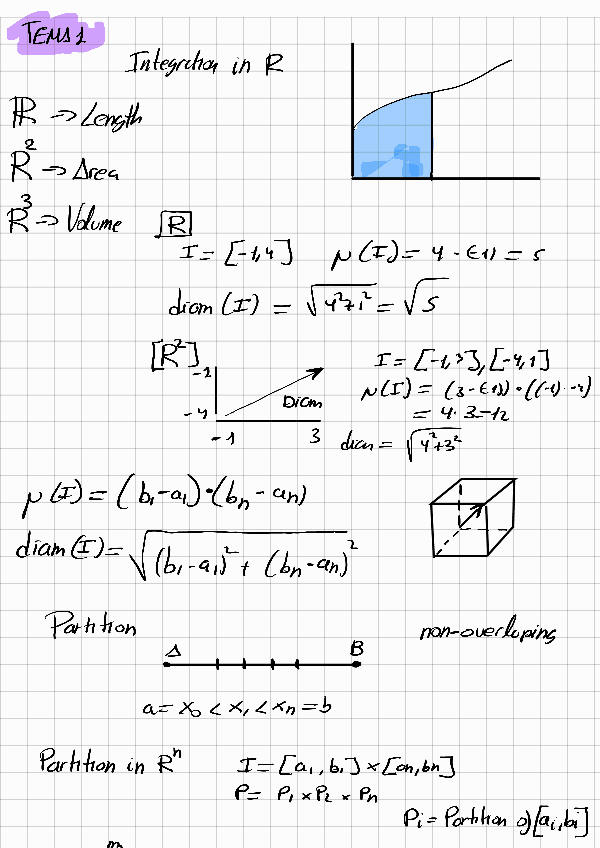 TEMA 1
Integration in R
R => Length
R² => Area
R³ => Volume
R
I = [-1,4] μ(I) = 4 - (-1) = 5
diam (I) = √4²+1² = √5
[R²]
-1
-4
Diam
-1 3
I = [-1,3],[-4,1]
μ(I) = (3-(-1)) · ((-1)--4)
= 4·3=12
diam = √4²+3²
μ(I) = (b₁-a₁)·(bn-an)
diam(I)= √(b₁-a₁)² + (bn-an)²
Partition
non-overluping
A B
a= x₀ < x₁ < xn = b
Partition in Rⁿ
I = [a₁,b₁] × [an,bn]
P= P₁ × P₂ × Pn
Pi = Partition of [ai,bi]
m